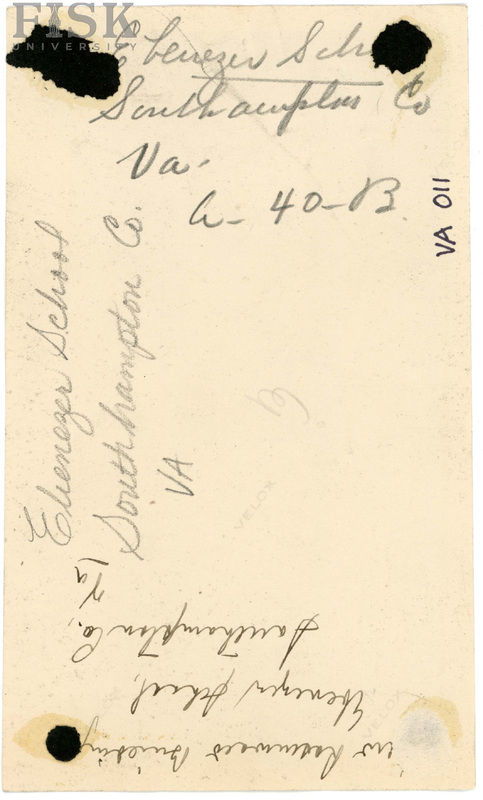 FISK
UNIVERSITY
Ebenezer Sch
Southampton Co
Va.
a- 40-B.
VA 011
Ebenezer School
Southhampton Co.
VA
VELOX
Rosenwald Building
Ebenezer School,
Southampton Co.,
Va